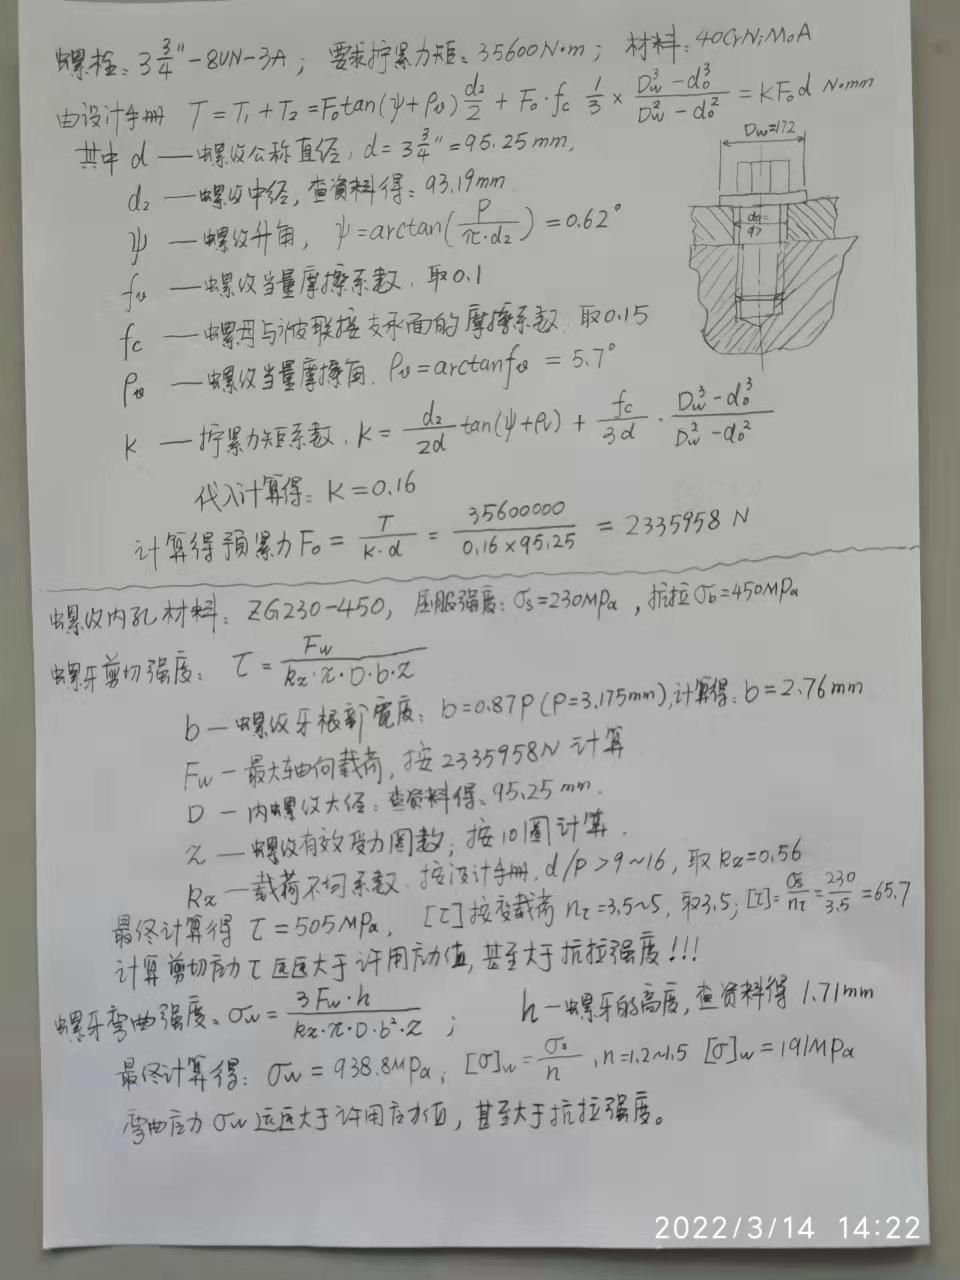 螺栓: 3 3/4" -8UN-3A ; 要求拧紧力矩: 35600N·m ; 材料: 40CrNiMoA
由设计手册 T = T₁ + T₂ = F₀tan(ψ+ρᵥ) d₂/2 + F₀·fc 1/3 × (Dw³-d₀³)/(Dw²-d₀²) = KF₀d N·mm
其中 d — 螺纹公称直径, d = 3 3/4" = 95.25mm,
d₂ — 螺纹中径, 查资料得: 93.19mm
ψ — 螺纹升角, ψ=arctan(P/(π·d₂)) = 0.62°
fᵥ — 螺纹当量摩擦系数, 取0.1
fc — 螺母与被联接支承面的摩擦系数. 取0.15
ρᵥ — 螺纹当量摩擦角. ρᵥ=arctanfᵥ = 5.7°
K — 拧紧力矩系数. K = d₂/2d tan(ψ+ρᵥ) + fc/3d · (Dw³-d₀³)/(Dw²-d₀²)
代入计算得: K = 0.16
计算得预紧力 F₀ = T/(K·d) = 35600000/(0.16×95.25) = 2335958 N
Dw=172
d₀=
97
螺纹内孔材料: ZG230-450, 屈服强度: σs=230MPa, 抗拉σb=450MPa
螺牙剪切强度: τ = Fw/(kz·π·D·b·z)
b — 螺纹牙根部宽度: b=0.87P (P=3.175mm), 计算得: b=2.76mm
Fw — 最大轴向载荷, 按2335958N 计算
D — 内螺纹大径: 查资料得: 95.25mm.
z — 螺纹有效受力圈数, 按10圈计算.
kz — 载荷不均系数. 按设计手册, d/P>9~16, 取 kz=0.56
最终计算得 τ=505MPa, [τ]按变载荷 nτ=3.5~5, 取3.5; [τ]=σs/nτ=230/3.5=65.7
计算剪切应力τ远远大于许用应力值, 甚至大于抗拉强度!!!
螺牙弯曲强度: σw = 3Fw·h/(kz·π·D·b²·z) ; h — 螺牙的高度, 查资料得 1.71mm
最终计算得: σw = 938.8MPa; [σ]w = σs/n, n=1.2~1.5 [σ]w=191MPa
弯曲应力σw远远大于许用应力值, 甚至大于抗拉强度。
2022/3/14 14:22